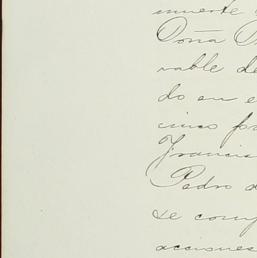 muerte
Doña
rable de
do en e
cinco for
Francis
Pedro a
se comp
acciones